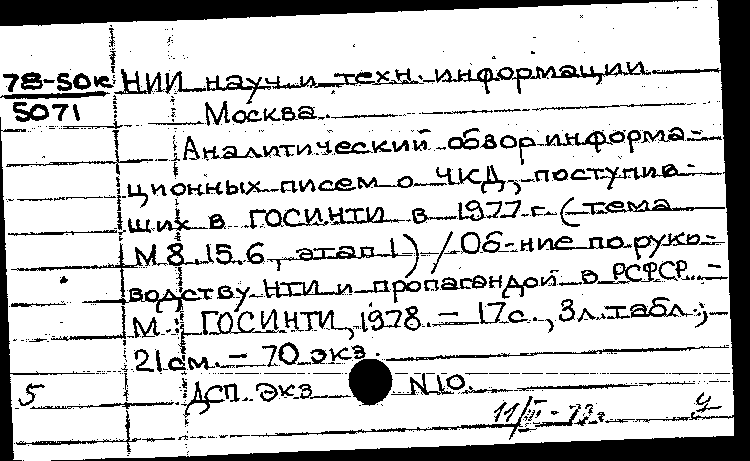 78-50к НИИ науч. и техн. информации
5071 Москва.
Аналитический обзор информа-
ционных писем о ЧКД, поступив-
ших в ГОСИНТИ в 1977 г. (тема
М 8.15.6, этап 1) / Об-ние по руко-
водству НТИ и пропагандой в РСФСР. -
М.: ГОСИНТИ, 1978. - 17 с., 3 л. табл.;
21 см. - 70 экз.
5 ДСП. Экз N10.
11/III-79г У